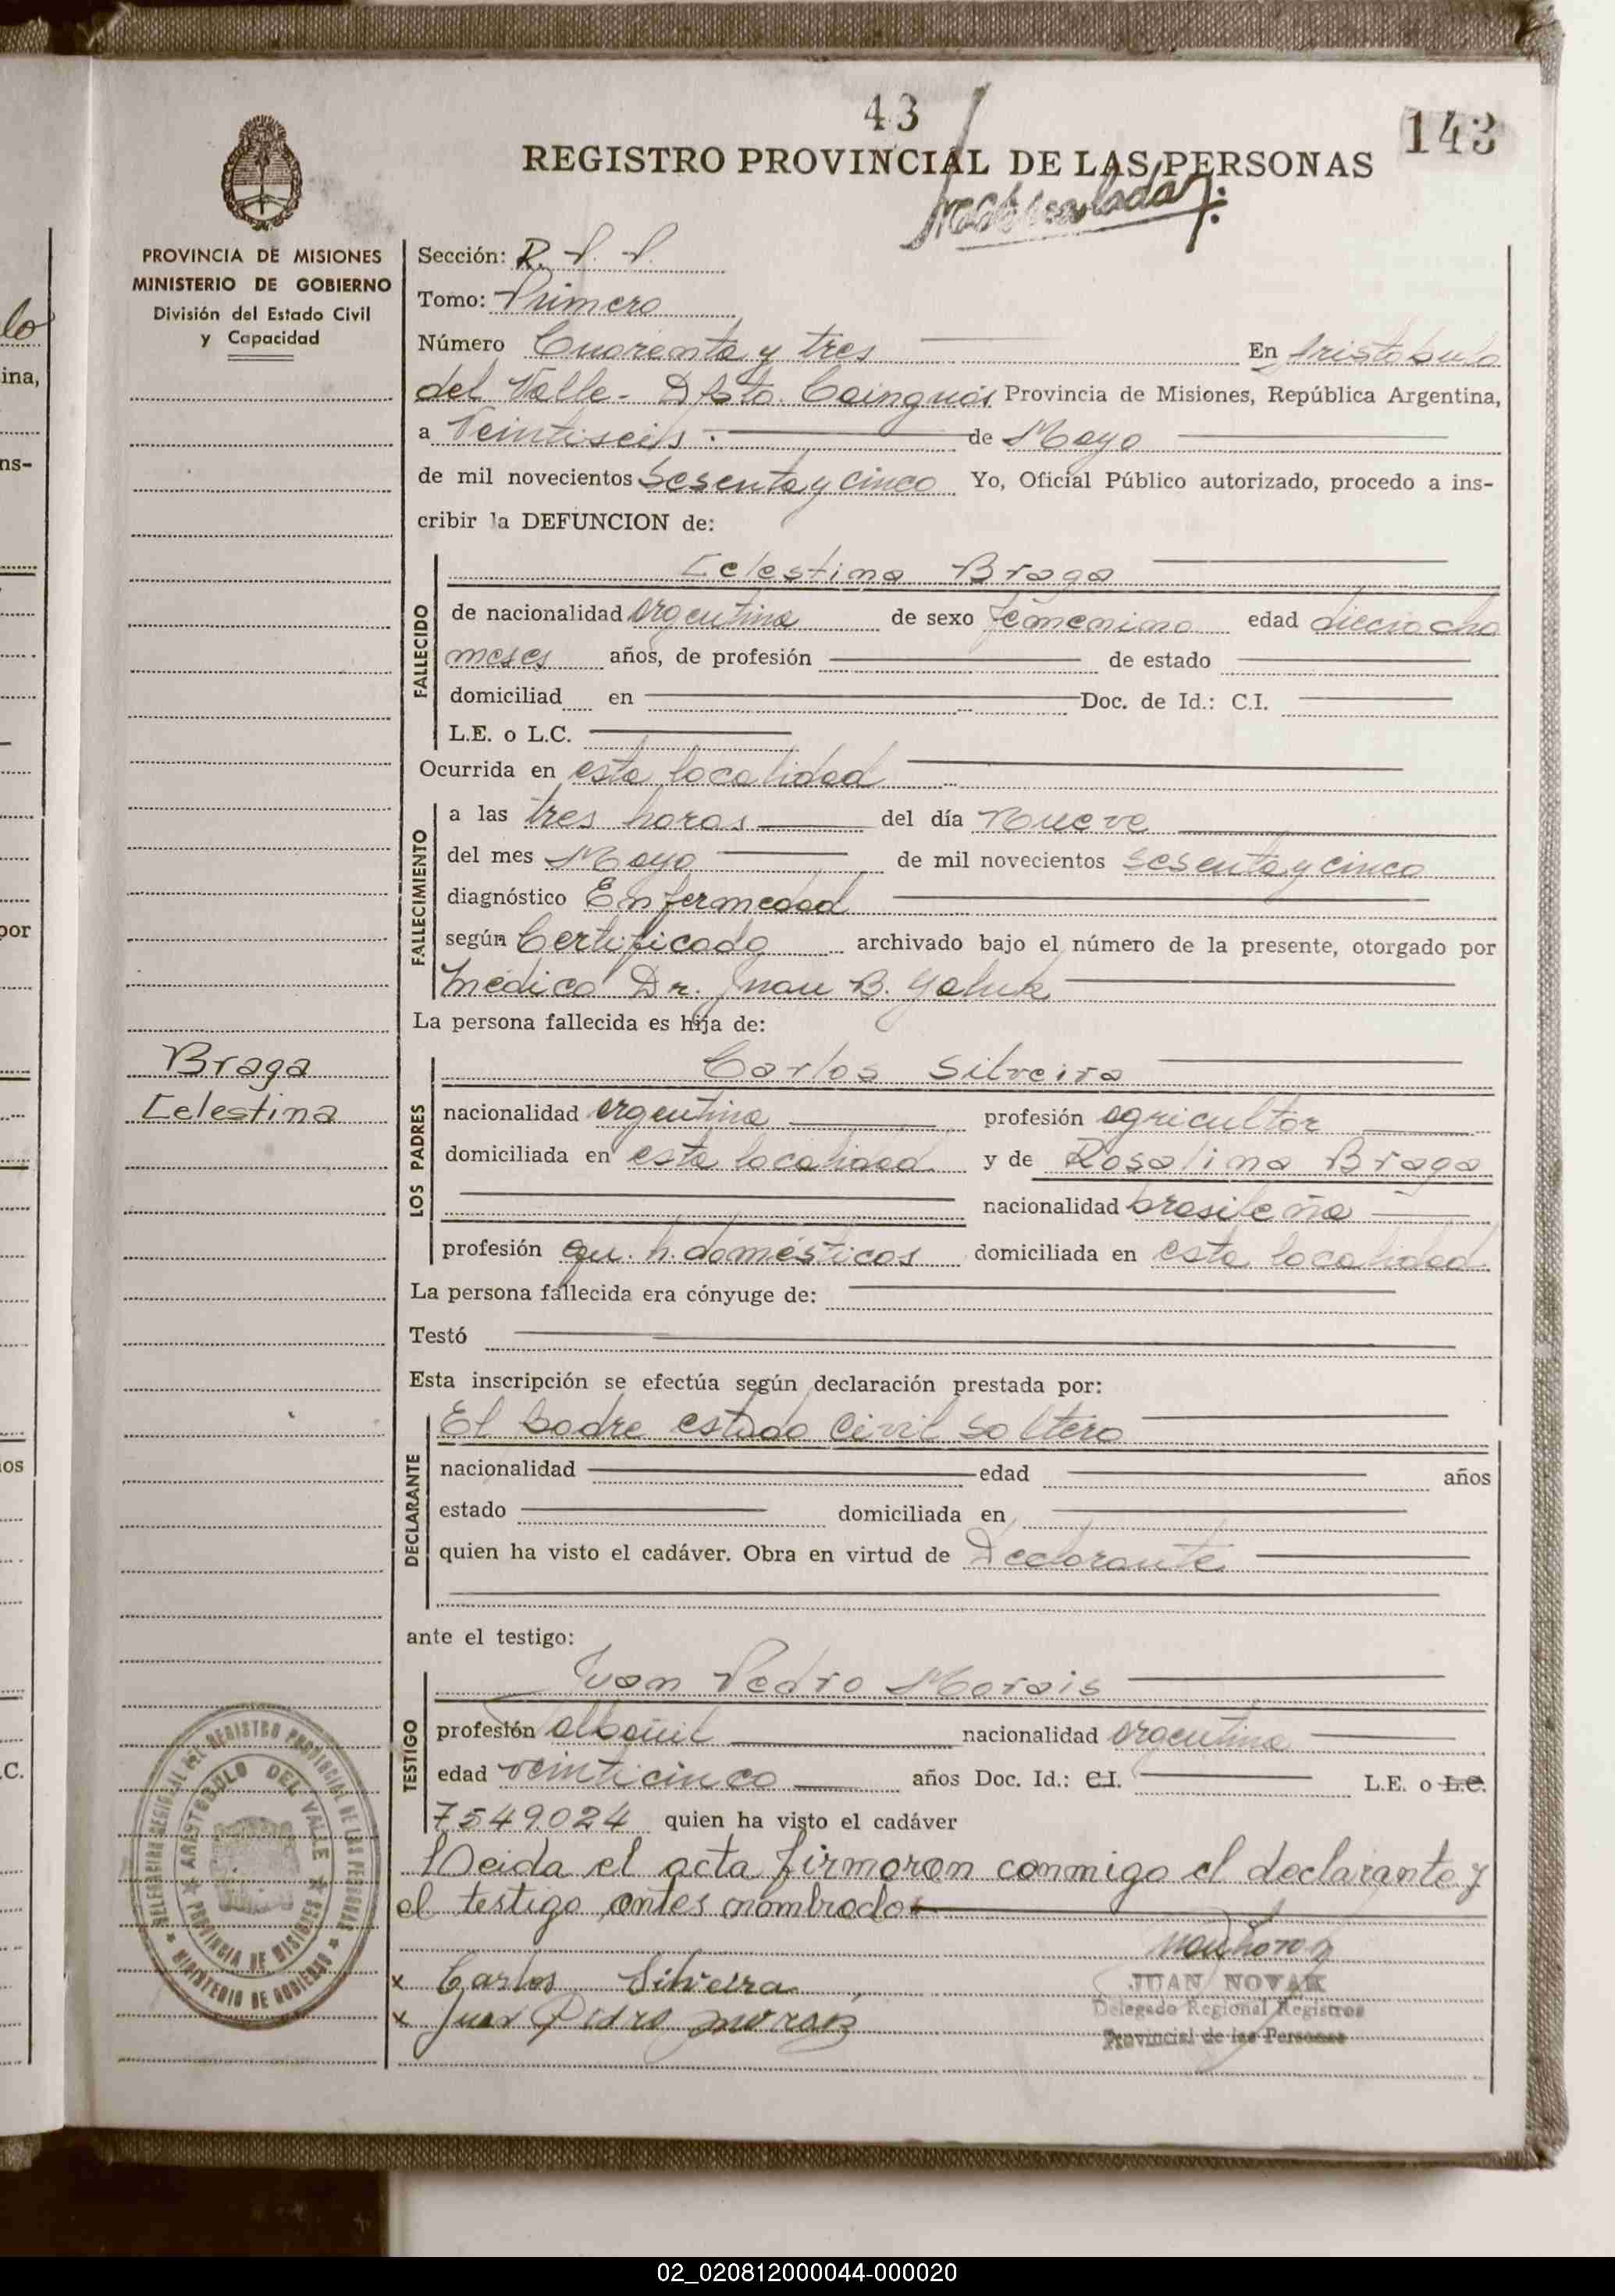 43
143
REGISTRO PROVINCIAL DE LAS PERSONAS
PROVINCIA DE MISIONES
MINISTERIO DE GOBIERNO
División del Estado Civil
y Capacidad
Sección: R. P. P.
Tomo: Primero
Número Cuarenta y tres En Aristobulo
del Valle - Dpto. Cainguás Provincia de Misiones, República Argentina,
a Veintiseis de Mayo
de mil novecientos Sesenta y cinco Yo, Oficial Público autorizado, procedo a ins-
cribir la DEFUNCION de:
FALLECIDO
Celestina Braga
de nacionalidad argentina de sexo femenino edad dieciocho
meses años, de profesión de estado
domiciliad en Doc. de Id.: C.I.
L.E. o L.C.
Ocurrida en esta localidad
FALLECIMIENTO
a las tres horas del día Nueve
del mes Mayo de mil novecientos sesenta y cinco
diagnóstico Enfermedad
según Certificado archivado bajo el número de la presente, otorgado por
médico Dr. Juan B.
La persona fallecida es hija de:
Braga
Celestina
LOS PADRES
Carlos Silveira
nacionalidad argentina profesión agricultor
domiciliada en esta localidad y de Rosalina Braga
nacionalidad brasileña
profesión qu. h. domésticos domiciliada en esta localidad
La persona fallecida era cónyuge de:
Testó
Esta inscripción se efectúa según declaración prestada por:
DECLARANTE
El padre estado Civil soltero
nacionalidad edad años
estado domiciliada en
quien ha visto el cadáver. Obra en virtud de Declarante
ante el testigo:
TESTIGO
Juan Pedro Morais
profesión albañil nacionalidad argentina
edad veinticinco años Doc. Id.: C.I. L.E. o L.C.
7549024 quien ha visto el cadáver
Leida el acta firmaron conmigo el declarante y
el testigo antes nombrados
x Carlos Silveira
x Juan Pedro Morais
JUAN NOVAK
Delegado Regional Registros
Provincial de las Personas
DELEGACION REGIONAL DEL REGISTRO PROVINCIAL DE LAS PERSONAS
MINISTERIO DE GOBIERNO
ARISTOBULO DEL VALLE
PROVINCIA DE MISIONES
02_020812000044-000020